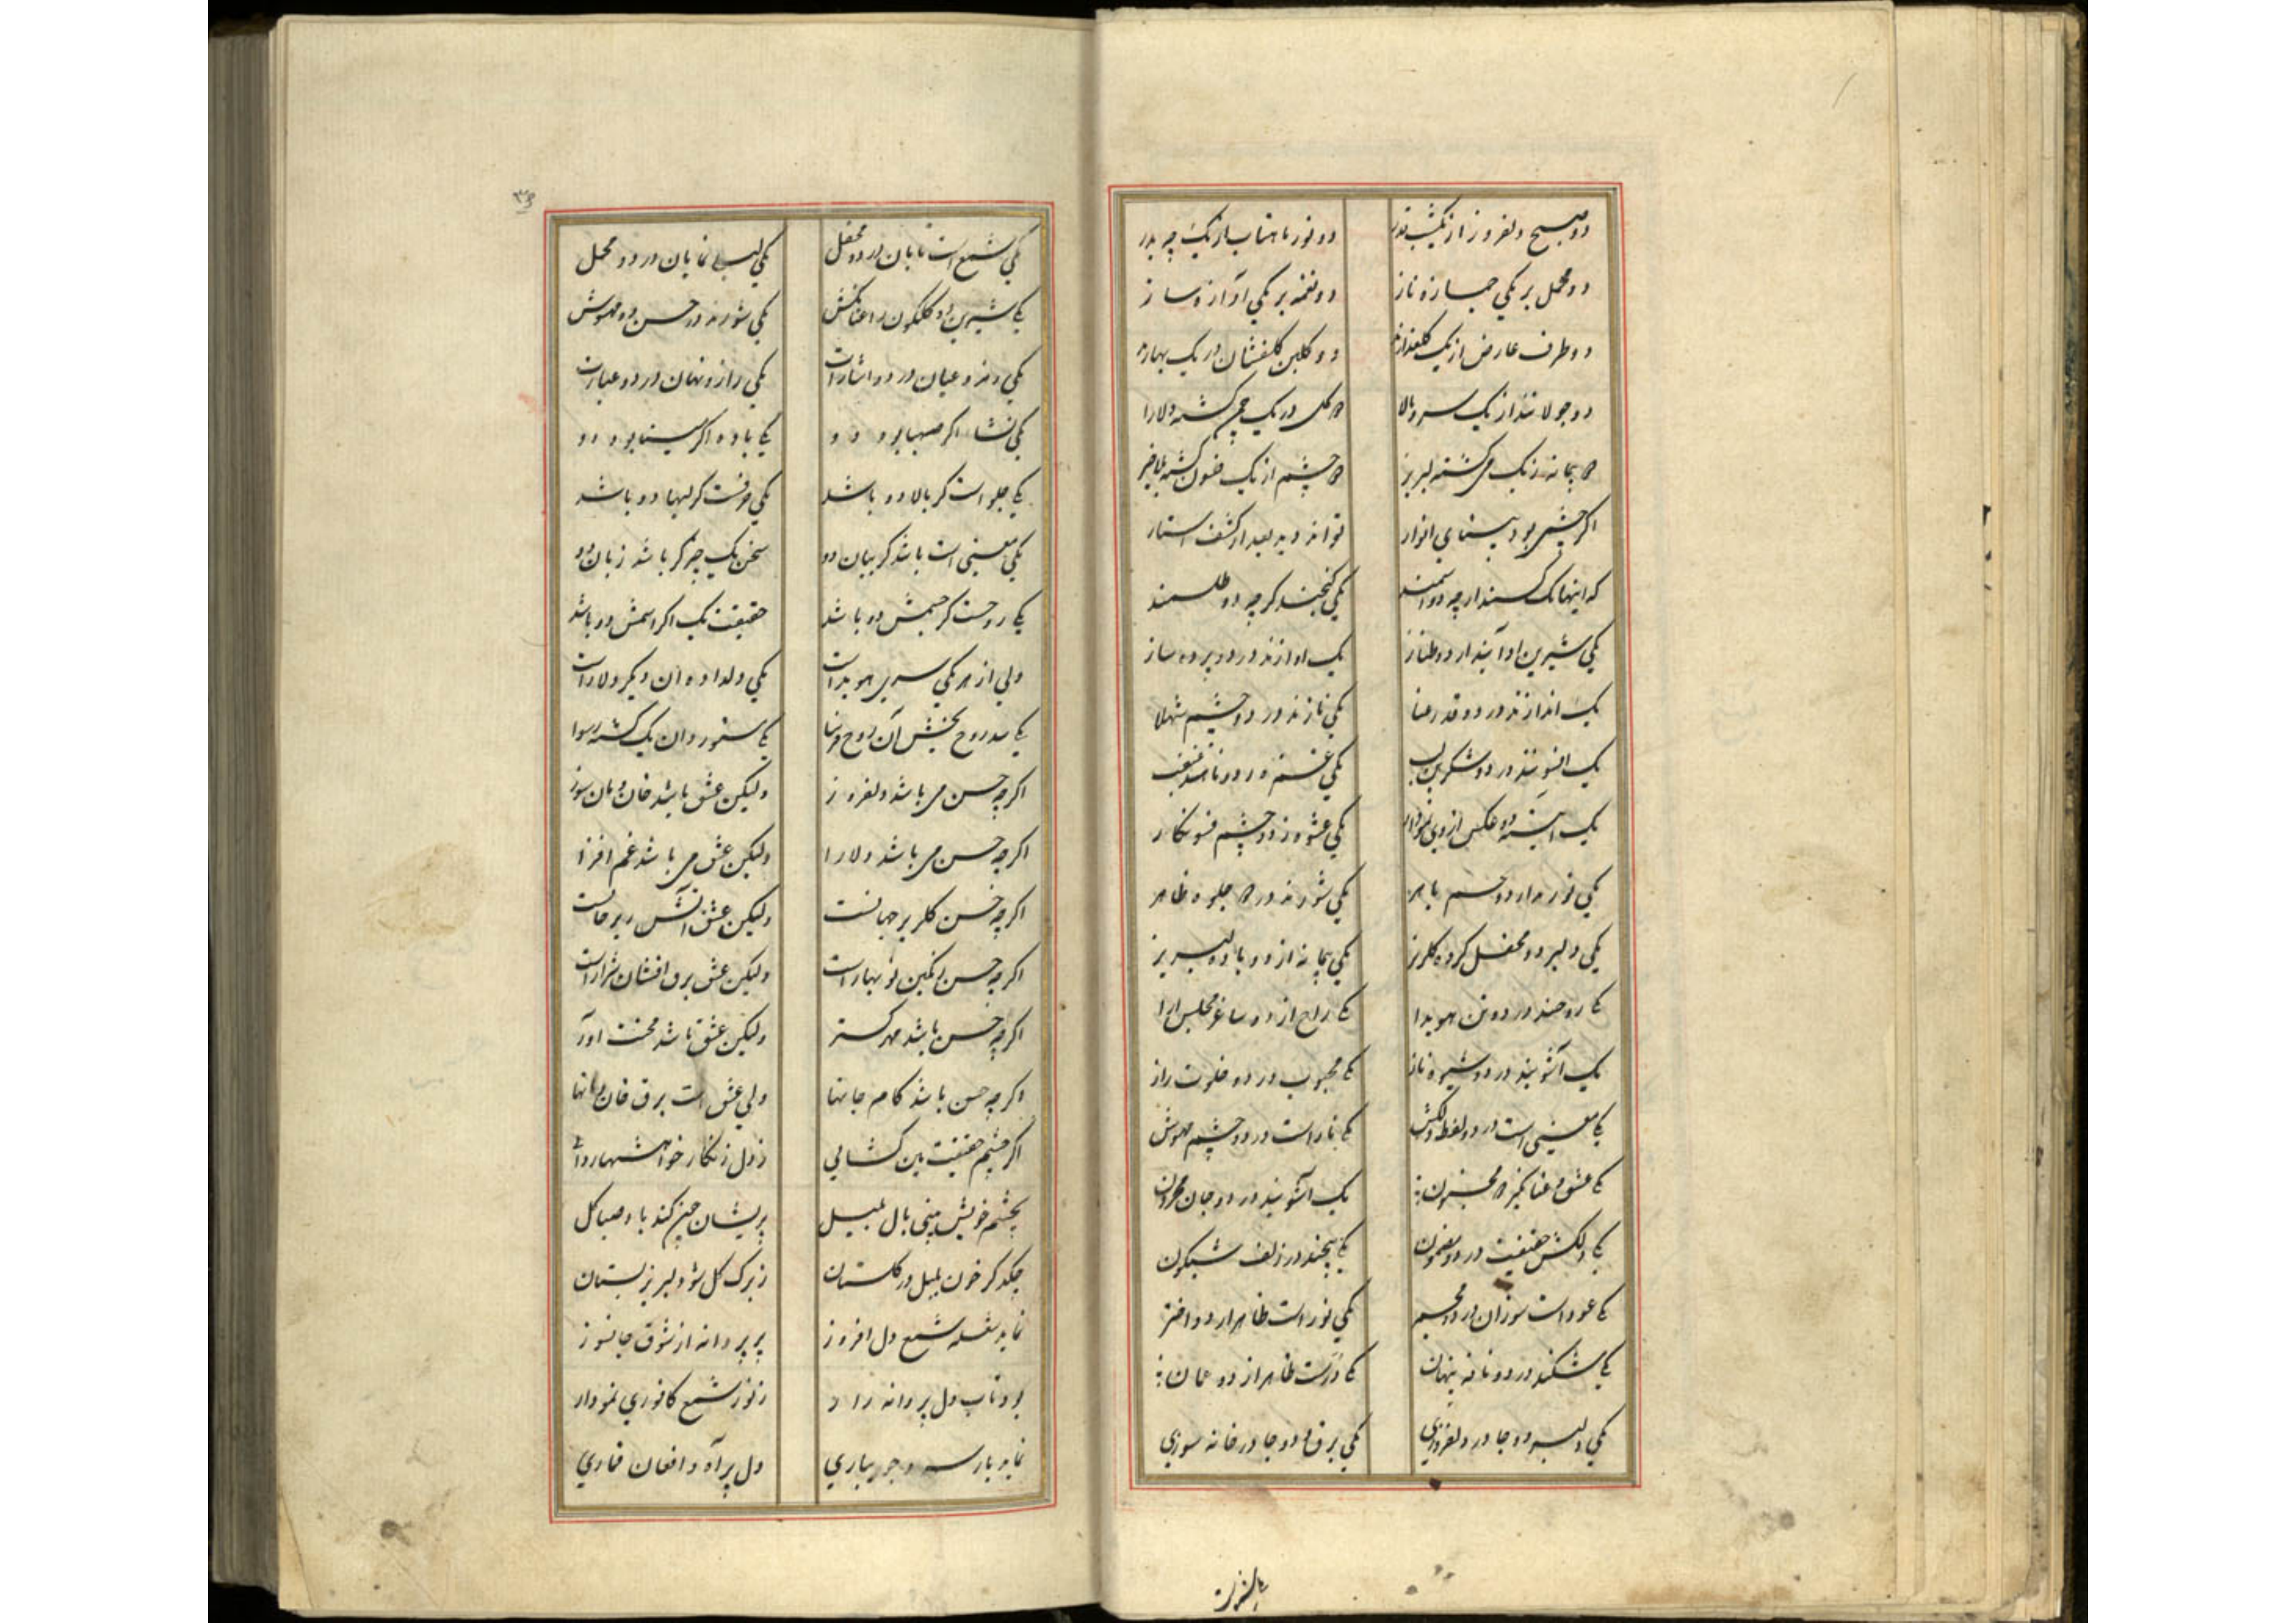 دو صبح دلفروز از یکشب قدر دو نور ماهتاب از یک چه بدر
دو محمل بر یکی جمازه ناز دو نغمه بر یکی آواز و ساز
دو طرف عارض از یک گلعذار دو گلبن گلفشان در یک بهار
دو جولانند از یک سرو بالا دو گل در یک چمن گشته دلارا
دو پیمانه ز یک می گشته لبریز دو چشم از یک فسون گشته
اگر چشمی بود بینای انوار تواند دید بعد از کشف استار
که اینها یک کسند ارچه دو اسمند یکی گنجند گرچه دو طلسمند
یکی شیرین ادایند از دو طناز یک آوازند در دو پرده ساز
یک اندازند در دو قد رعنا یکی نازند در دو چشم شهلا
یک افسونند در دو شکرین لب یکی
یک آینه دو عکس از وی نمودار یکی عشوه ز دو چشم فسونکار
یکی نورند از دو چشم باهر یکی شورند در دو جلوه ظاهر
یکی دلبر دو محفل کرده گلریز یکی پیمانه از دو باده لبریز
یکی روحند در دو تن هویدا یکی راح از دو ساغر مجلس آرا
یک آشوبند در دو شیوه ناز یکی محبوب در دو خلوت راز
یکی معنی است در دو لفظ دلکش یکی ناز است در دو چشم مهوش
یکی عشق و عناگیر دو محزون یک آشوبند در دو جان محزون
یکی دلکش حقیقت در دو مضمون یکی پیچند در زلف شبگون
یکی عود است سوزان در دو مجمر یکی نور است ظاهر از دو اختر
یکی مشکند در دو نافه پنهان یکی درست ظاهر از دو عمان
یکی دلبر دو جا در دلفروزی یکی برق و دو جا در خانه سوزی
یکی شمع است تابان در دو محفل یکی لیلی نمایان در دو محمل
یکی شیرین دو گلگون را عنانکش یکی شورند در حسن دو مهوش
یکی رمز و عیان در دو اشارات یکی راز و نهان در دو عبارت
یکی نشاء اگر صهبا بود دو یکی باده اگر مینا بود دو
یکی جلوه است گر بالا دو باشد یکی حرفست گر لبها دو باشد
یکی معنی است باشد گر بیان دو سخن یک چیز گر باشد زبان دو
یکی روحست گر جسمش دو باشد حقیقت یک اگر اسمش دو باشد
ولی از هر یکی سری هویداست یکی دلداده آن دیگر دلاراست
یکی شد روح بخش آن روح فرسا یکی مستور و آن یک گشته رسوا
اگرچه حسن می باشد دلفروز ولیکن عشق باشد خان و مان سوز
اگرچه حسن می باشد دلارا ولیکن عشق می باشد غم افزا
اگرچه حسن گلریز جهانست ولیکن عشق آتش ریز جانست
اگرچه حسن رنگین نو بهار است ولیکن عشق برق افشان شرار است
اگرچه حسن باشد مهر گستر ولیکن عشق باشد محنت آور
اگرچه حسن باشد کام جانها ولی عشق است برق خان و مانها
اگر چشم حقیقت بین گشایی ز دل زنگار خواهشها
بچشم خویش بینی بال بلبل پریشان چون کند باد صبا گل
چکد گر خون بلبل در گلستان ز برگ گل شود لبریز بستان
نماید شعله شمع دل افروز پر پروانه از شوق جانسوز
بود تاب دل پروانه زار ز نور شمع کافوری نمودار
نماید بار سرو جویباری دل پر آه و افغان قماری